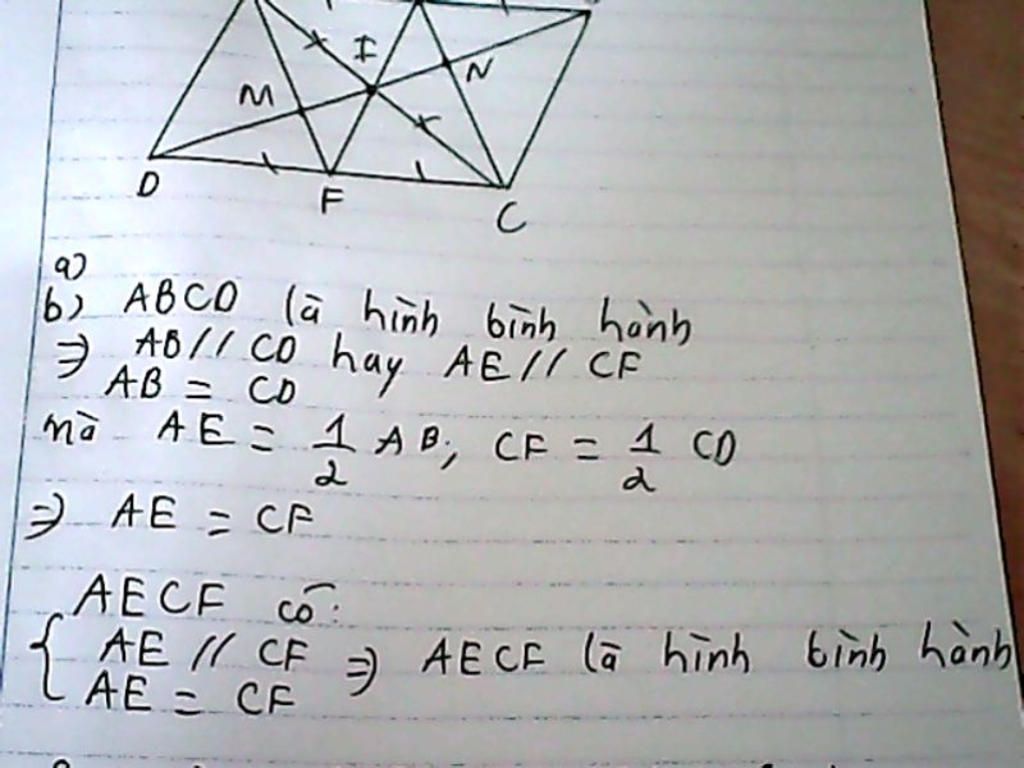 I
M
N
D
F
C
a)
b) ABCD là hình bình hành
⇒ AB // CD hay AE // CF
AB = CD
mà AE = 1/2 AB; CF = 1/2 CD
⇒ AE = CF
AECF có:
{ AE // CF ⇒ AECF là hình bình hành
AE = CF